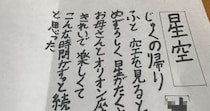 星空
じゅくの帰り
ふと 空を見ると
めずらしく 星がたくさ
お母さんとオリオン座
きれいで 楽しくて
こんな時間がずっと続
と思った。